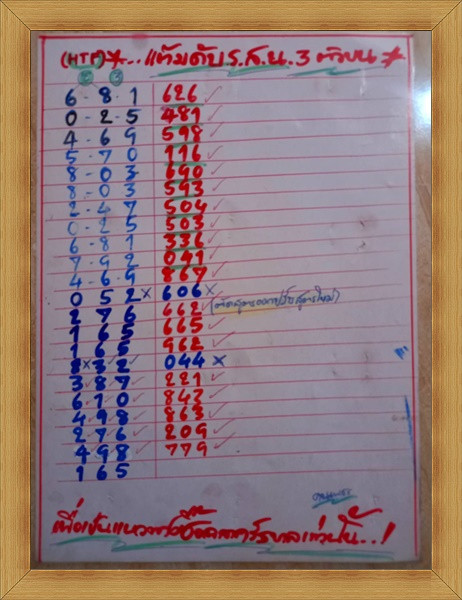 (HTP)*...แต้มดับ ร.ส.น. 3 ตัวบน *
2 3
6-8-1 626 ✓
0-2-5 481 ✓
4-6-9 598 ✓
5-7-0 116 ✓
8-0-3 690 ✓
8-0-3 593 ✓
2-4-7 504 ✓
0-2-5 503 ✓
6-8-1 336 ✓
7-9-2 091 ✓
4-6-9 867 ✓
0 5 2 × 606 ×
2 7 6 662 ✓
1 6 5 665 ✓
1 6 5 962 ✓
8×3 2 ✓ 044 ×
3 8 7 ✓ 221 ✓
6 1 0 ✓ 843 ✓
4 9 8 ✓ 863 ✓
2 7 6 ✓ 209 ✓
4 9 8 ✓ 779 ✓
1 6 5
เพื่อเป็นแนวทางซื้อสลากรัฐบาลเท่านั้น..!